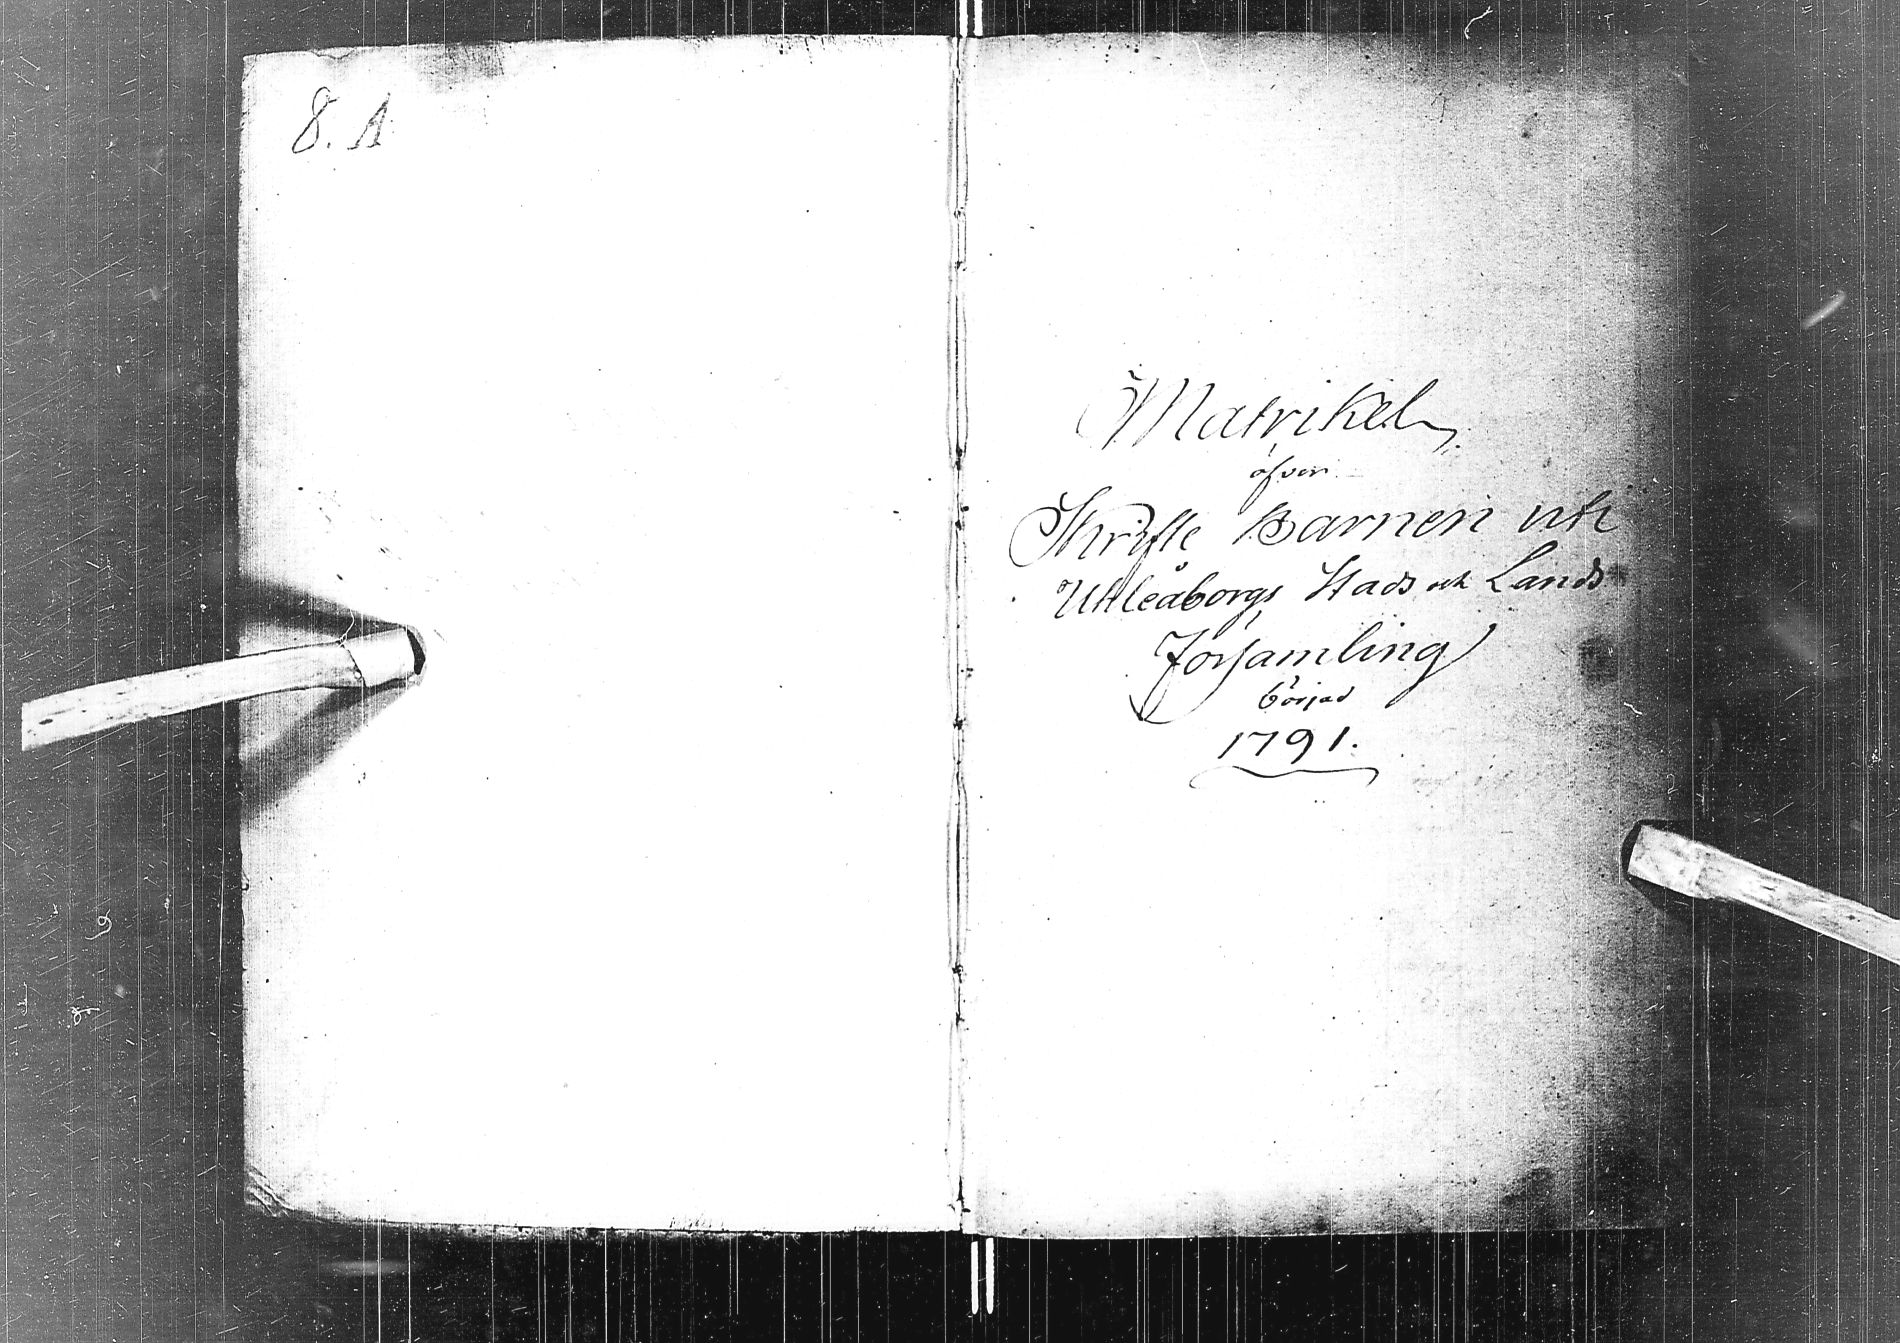 8. A
Matrikel
öfver
Skrifte Barnen uti
Uhleåborgs Stads och Lands
Församling
börjad
1791.